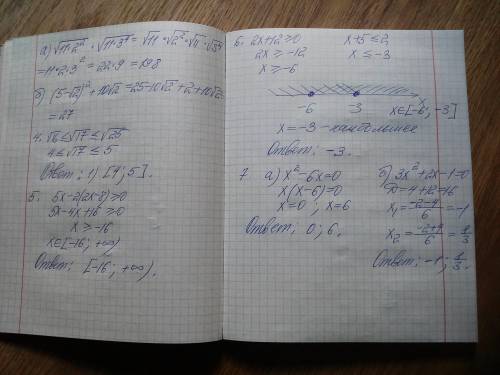 а) √11·2² · √11·3⁴ = √11 · √2² · √11 · √3⁴
=11·2·3² = 22·9 = 198
б) (5-√2)² + 10√2 = 25-10√2+2+10√2=
= 27
4. √16 ≤ √17 ≤ √25
4 ≤ √17 ≤ 5
Ответ: 1) [4; 5].
5. 5x-2(2x-8)≥0
5x-4x+16≥0
x ≥ -16
x∈[-16; +∞)
Ответ: [-16; +∞).
6. 2x+12≥0 x+5≤2
2x ≥ -12 x ≤ -3
x ≥ -6
-6 -3 x
x∈[-6; -3]
x=-3 - наибольшее
Ответ: -3.
7 а) x²-6x=0
x(x-6)=0
x=0; x=6
Ответ: 0; 6.
б) 3x²+2x-1=0
D=4+12=16
x₁ = -2-4/6 = -1
x₂ = -2+4/6 = 1/3
Ответ: -1; 1/3.